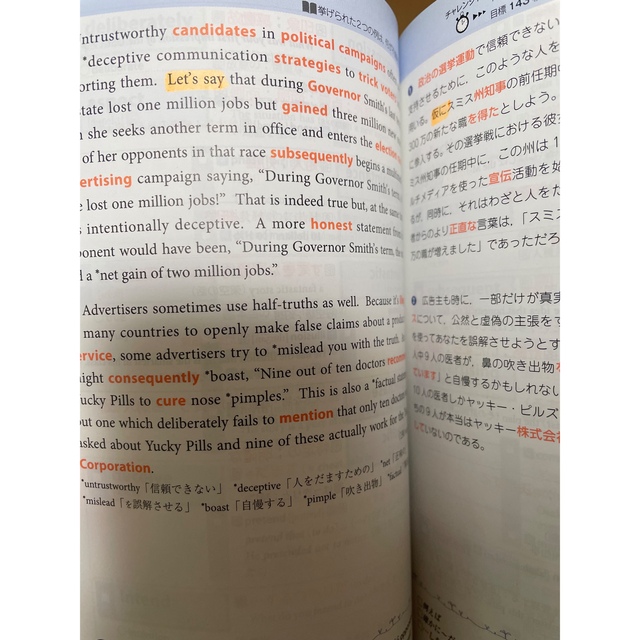 挙げられた2つの例は,
Untrustworthy candidates in political campaigns
*deceptive communication strategies to trick voters
orting them. Let's say that during Governor Smith's
tate lost one million jobs but gained three million new
she seeks another term in office and enters the election
of her opponents in that race subsequently begins a
ertising campaign saying, “During Governor Smith's term,
lost one million jobs!” That is indeed true but, at the
s intentionally deceptive. A more honest statement
onent would have been, “During Governor Smith's term, the
d a *net gain of two million jobs.”
Advertisers sometimes use half-truths as well. Because it's
many countries to openly make false claims about a product
ervice, some advertisers try to *mislead you with the truth.
ight consequently *boast, “Nine out of ten doctors
Yucky Pills to cure nose *pimples.” This is also a *factual
out one which deliberately fails to mention that only ten doctors
asked about Yucky Pills and nine of these actually work for the
Corporation.
*untrustworthy「信頼できない」 *deceptive「人をだますための」 *net
*mislead「を誤解させる」 *boast「自慢する」 *pimple「吹き出物」 *factual
チャレンジ
目標 143
❶ 政治の選挙運動で信頼できない
支持させるために,このような人を
用いる。仮にスミス州知事の前任期中
300万の新たな職を得たとしよう。
に参入する。その選挙戦における彼女
ミス州知事の任期中に,この州は1
ルチメディアを使った宣伝活動を始
るが,同時に,それはわざと人をだ
者からのより正直な言葉は,「スミ
万の職が増えました」であっただろ
❷ 広告主も時に,一部だけが真実
スについて,公然と虚偽の主張をす
を使ってあなたを誤解させようとす
人中9人の医者が,鼻の吹き出物
ています」と自慢するかもしれない
10人の医者しかヤッキー・ピルズ
ちの9人が本当はヤッキー株式会社
していないのである。